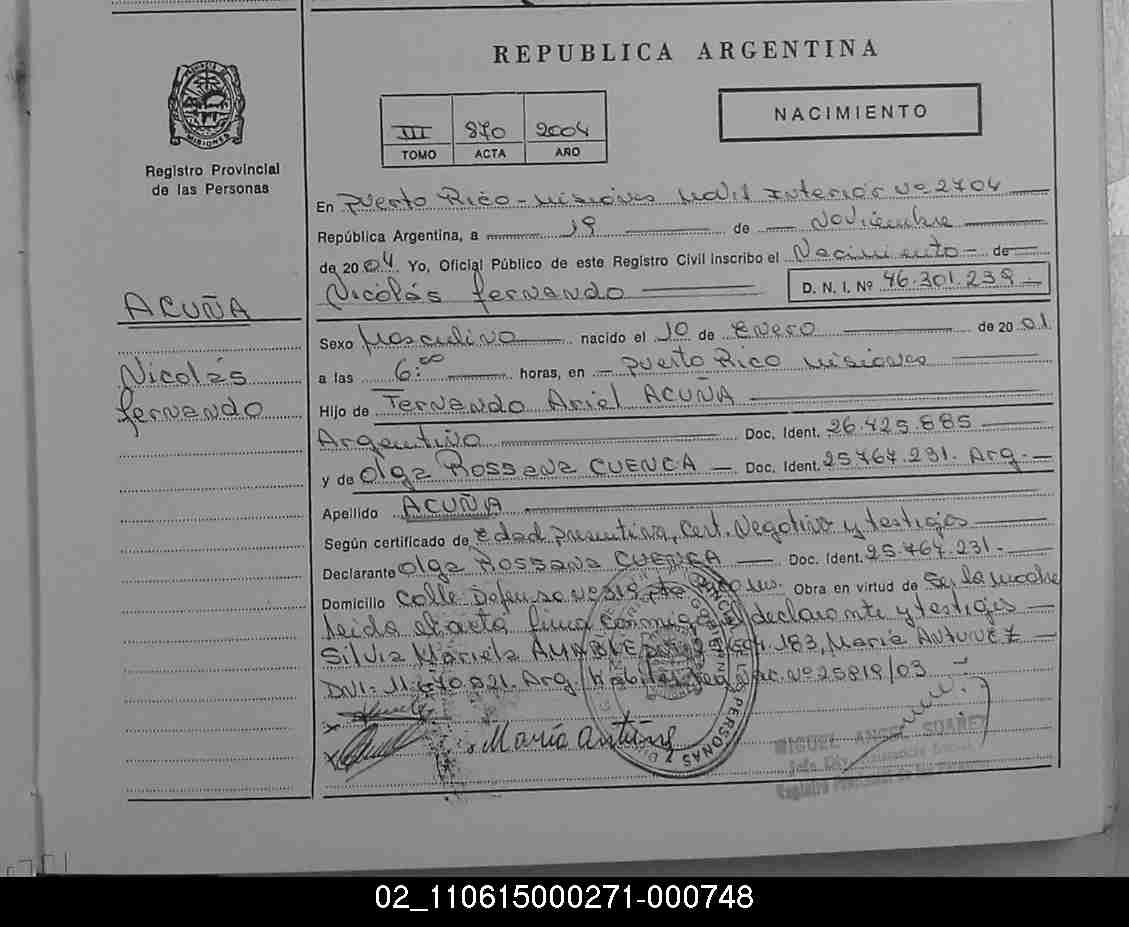 REPUBLICA ARGENTINA
MISIONES
Registro Provincial
de las Personas
III 870 2004
TOMO ACTA AÑO
NACIMIENTO
En Puerto Rico - Misiones Movil Interior Nº 2704
República Argentina, a 19 de Noviembre
de 2004 Yo, Oficial Público de este Registro Civil inscribo el Nacimiento de
Nicolás fernando D. N. I. Nº 46.301.239
ACUÑA
Nicolás
fernando
Sexo Masculino nacido el 10 de Enero de 2001
a las 6:00 horas, en Puerto Rico Misiones
Hijo de Fernando Ariel ACUÑA
Argentino Doc. Ident. 26.425.885
y de Olga Rossana CUENCA Doc. Ident. 25.767.231. Arg.
Apellido ACUÑA
Según certificado de Edad presuntiva, Cert. Negativo y testigos
Declarante Olga Rossana CUENCA Doc. Ident. 25.767.231.
Domicilio Calle Defensa Nº 319 Pto Rico Ms. Obra en virtud de Ser la madre
leida el acta firma conmigo el declarante y testigos
Silvia Mariela 183, Maria ANTUNEZ
DNI: 11.670.821. Arg. Nac. Nº 25819/03
Maria Antune
PERSONAS
MIGUEL ANGEL SUAREZ
02_110615000271-000748